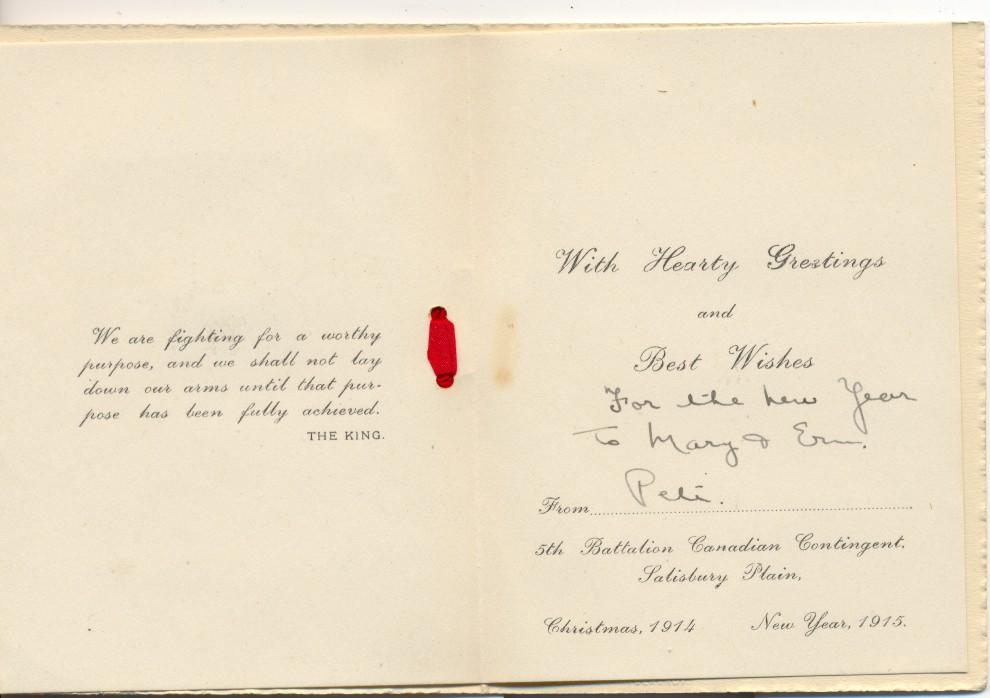 We are fighting for a worthy
purpose, and we shall not lay
down our arms until that pur-
pose has been fully achieved.
THE KING.
With Hearty Greetings
and
Best Wishes
For the new Year
To Mary &
From
5th Battalion Canadian Contingent.
Salisbury Plain,
Christmas, 1914 New Year, 1915.